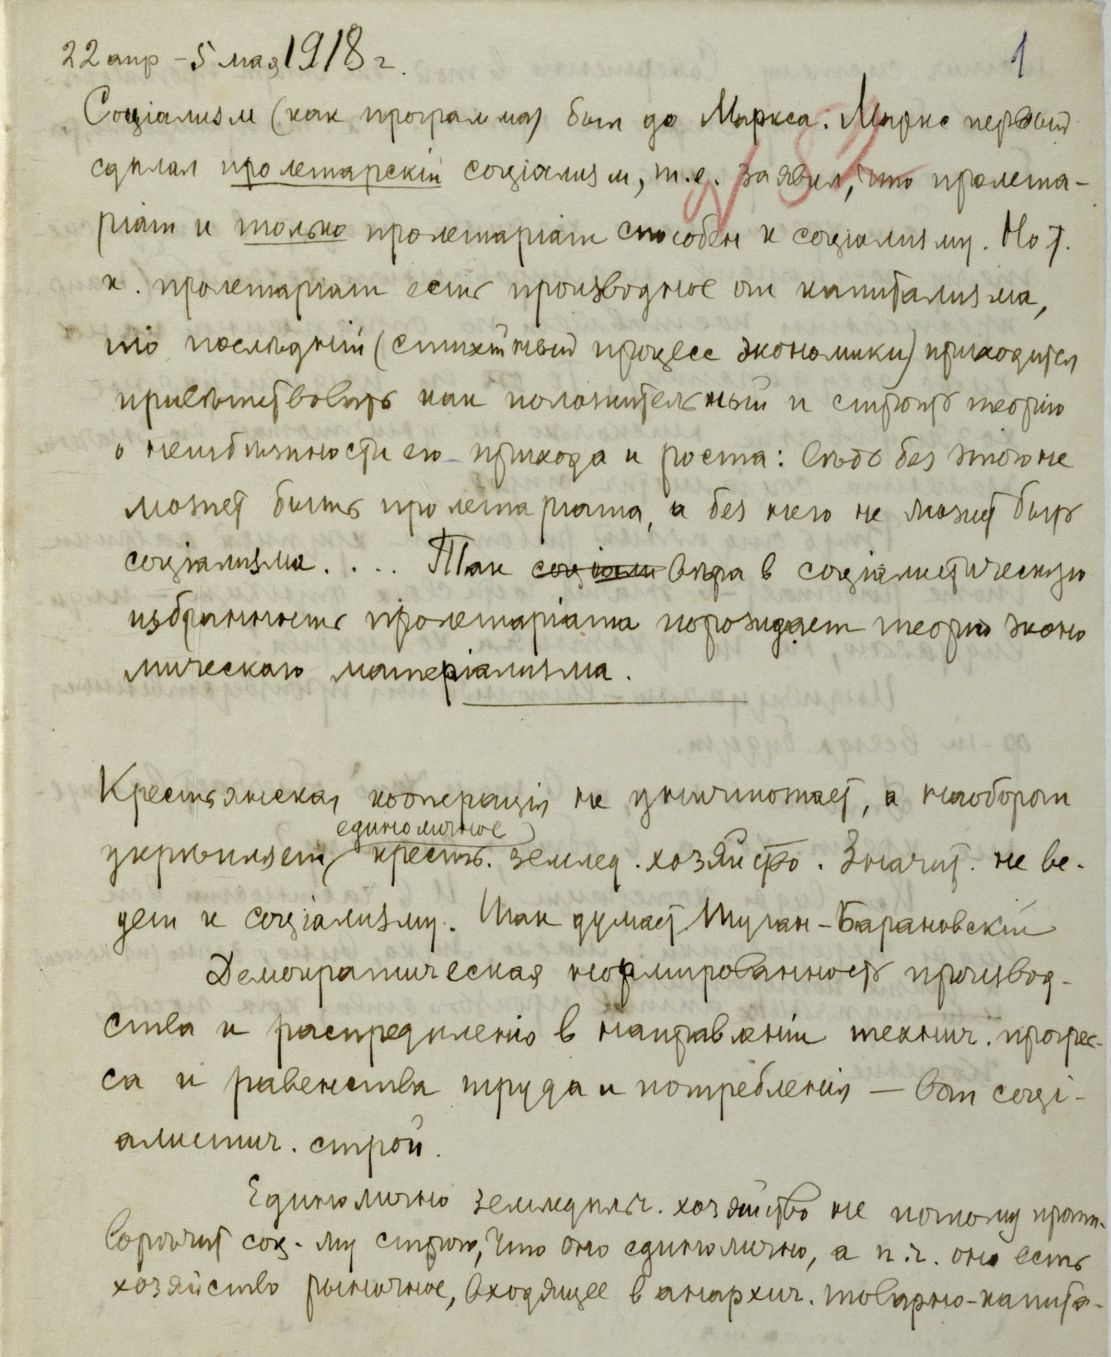 22 апр - 5 мая 1918 г.
1
Соціализм (как программа) был до Маркса. Маркс первый
сделал пролетарскій соціализм, т.е. заявил, что пролета-
ріат и только пролетаріат способен к соціализму. Но т.
к. пролетаріат есть производное от капитализма,
то последній (стихійный процесс экономики) приходится
приветствовать как положительный и строить теорію
о неизбежности его прихода и роста: ведь без этого не
может быть пролетаріата, а без него не может быть
соціализма. . . . Так соціали вера в соціалистическую
избранность пролетаріата порождает теорію эконо
мическаго матеріализма.
Крестьянская кооперація не уничтожает, а наоборот
единоличное
укрепляет крест. землед. хозяйство. Значит. не ве-
дет к соціализму. Так думает Туган-Барановскій
Демократическая нормированность производ-
ства и распределенія в направленіи технич. прогрес-
са и равенства труда и потребленія — вот соці-
алистич. строй.
Единолично земледельч. хозяйство не потому проти-
воречит соц-му строю, что оно единолично, а п.ч. оно есть
хозяйство рыночное, входящее в анархич. товарно-капита-